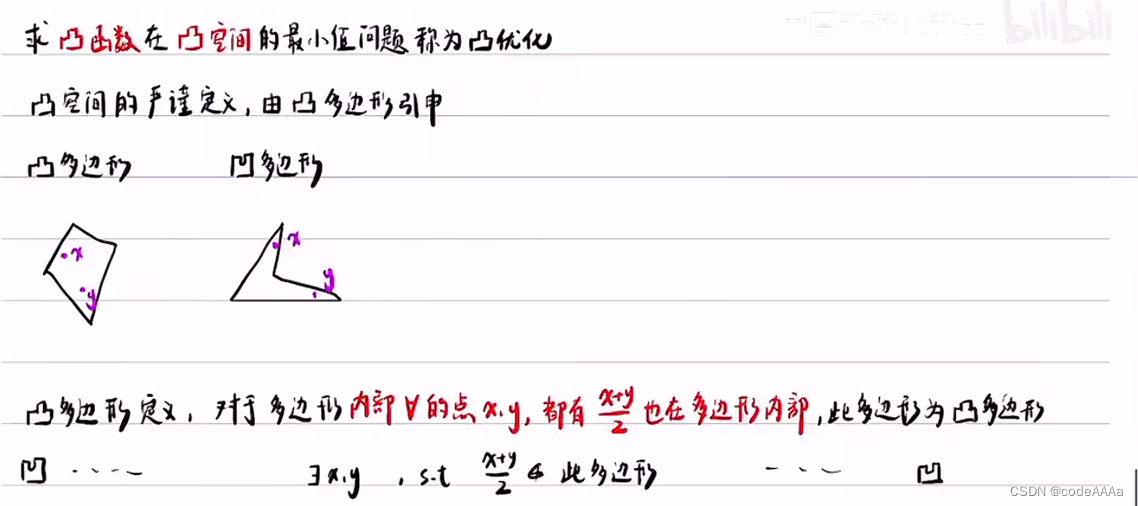 求凸函数在凸空间的最小值问题称为凸优化
bilibili
凸空间的严谨定义,由凸多边形引申
凸多边形 凹多边形
x x
y y
凸多边形定义,对于多边形内部∀的点x,y,都有 x+y/2 也在多边形内部,此多边形为凸多边形
凹 ---- ∃x,y , s.t x+y/2 ∉ 此多边形 --- 凹
CSDN @codeAAAa